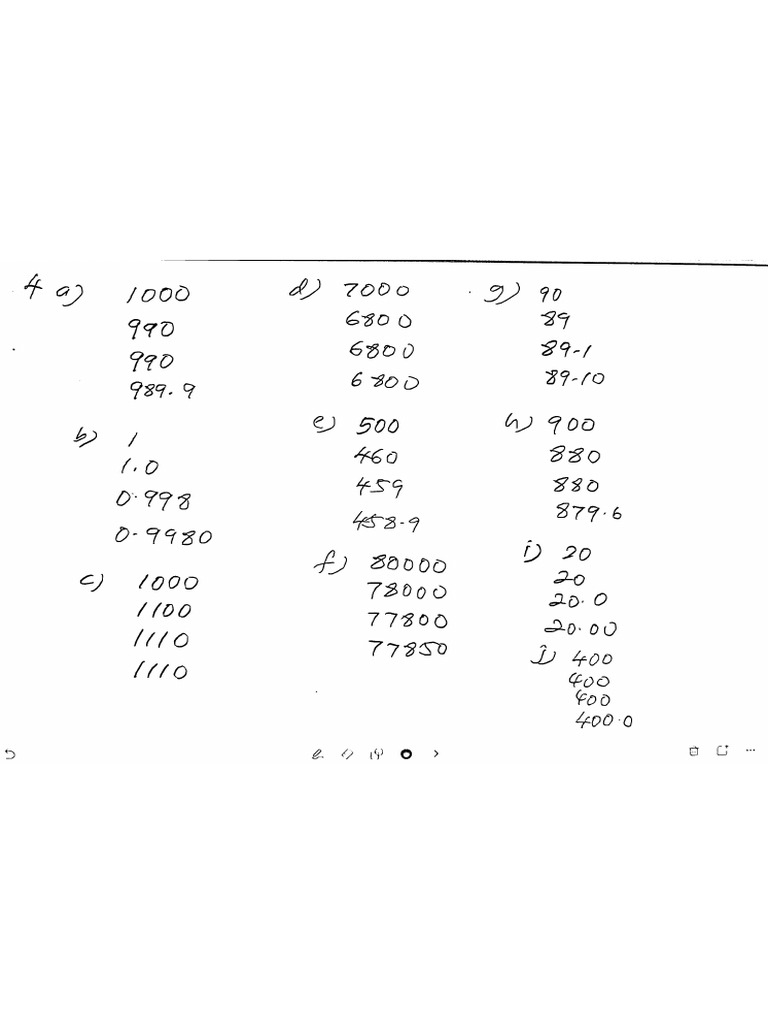 4 a) 1000
990
990
989.9
b) 1
1.0
0.998
0.9980
c) 1000
1100
1110
1110
d) 7000
6800
6800
6800
e) 500
460
459
458.9
f) 80000
78000
77800
77850
g) 90
89
89.1
89.10
h) 900
880
880
879.6
i) 20
20
20.0
20.00
j) 400
400
400
400.0